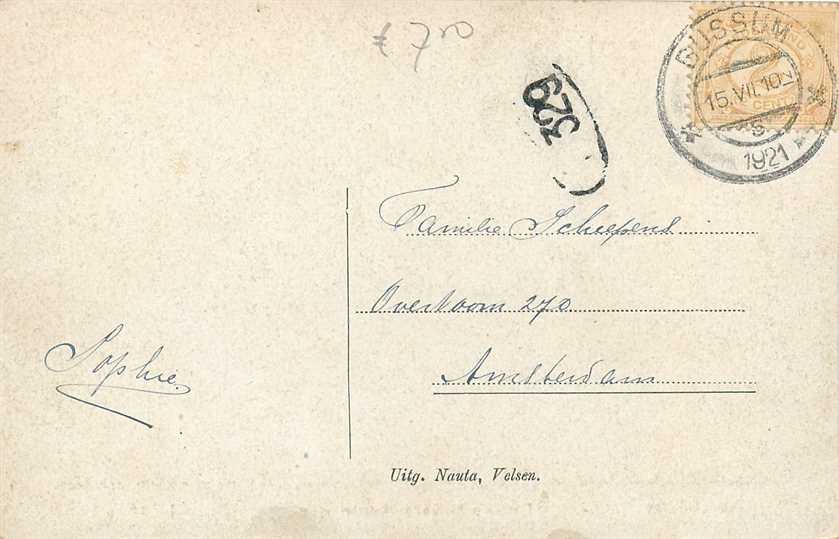 € 7,00
BUSSUM
15.VII.10N
S
1921
CENT
329
Familie Scheepens
Overtoom 270
Amsterdam
Sophie.
Uitg. Nauta, Velsen.